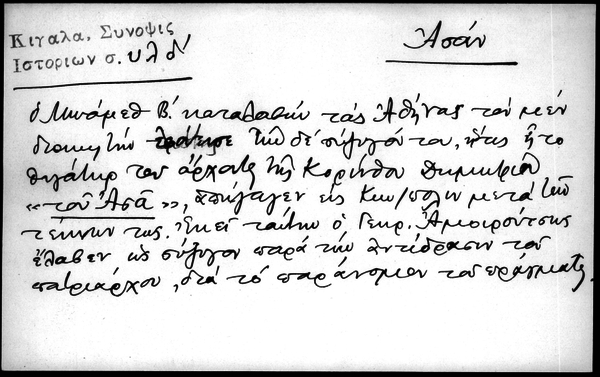 Κιγαλα, Συνοψις
Ιστοριων σ. υλδ'
Ἀσάν
ὁ Μωάμεθ Β΄. καταλαβὼν τὰς Ἀθήνας τὸν μὲν
διοικητὴν τὴν δὲ σύζυγόν του, ἥτις ἦτο
θυγάτηρ τοῦ ἄρχοντος τῆς Κορίνθου Δημητρίου
«τοῦ Ἀσᾶ», ἀπήγαγεν εἰς Κων/πολιν μετὰ τῶν
τέκνων της. Ἐκεῖ ταύτην ὁ Γεωρ. Ἀμοιρούτσης
ἔλαβεν ὡς σύζυγον παρὰ τὴν ἀντίδρασιν τοῦ
πατριάρχου, διὰ τὸ παράνομον τοῦ πράγματος.